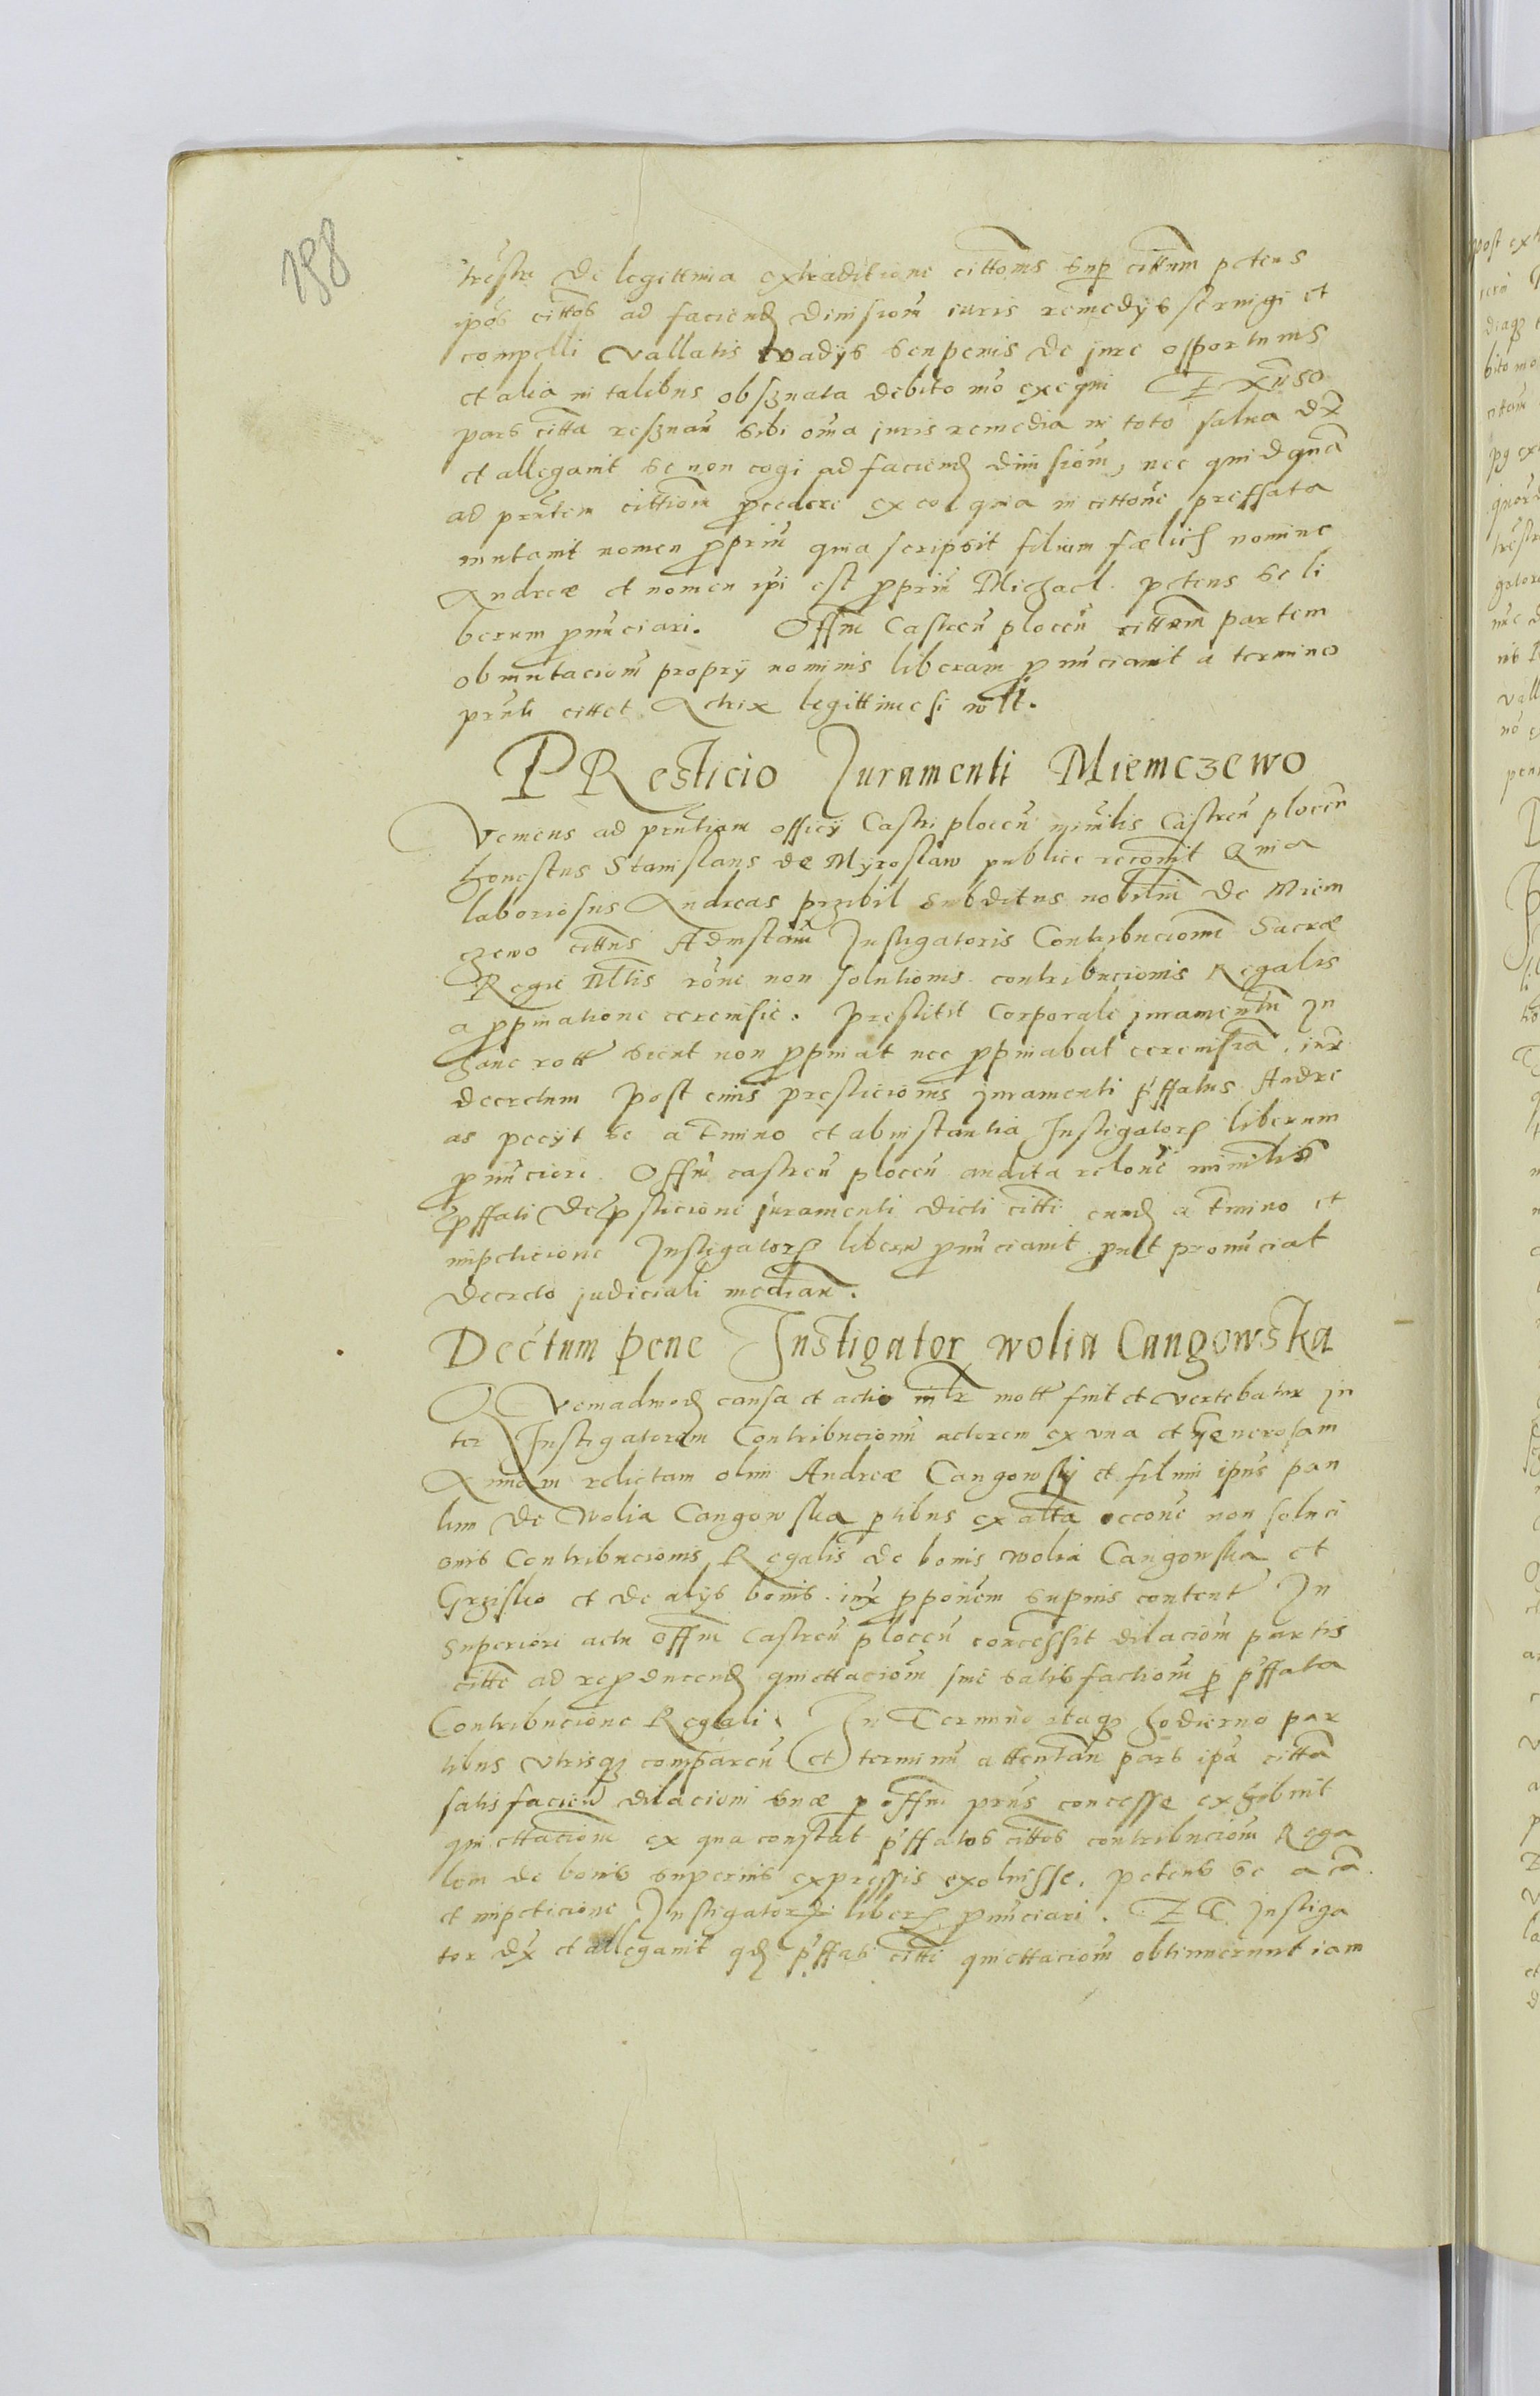 188
trestr de legittima extraditione cittonis sup cittum petens
ipos cittos ad faciend divisiom iuris remedys stringi et
compelli vallatis vadys seu penis de jure opportunis
et alia in talibus obseruata debito mo exequi Et
pars citta reseruau sibi oma juris remedia in toto salua dx
et allegauit se non cogi ad faciend diuisiom, nec quidquam
ad pñtem cittiom procedere ex eo quia in cittone preffata
mutauit nomen propriu quia scripsit filium foelicis nomine
Andreæ et nomen ipi est propriu Michael petens se li
berum pronuciari. Offm Castren plocen cittam partem
ob mutaciom proprij nominis liberam pronunciauit a termino
pñti cittet Actrix legittime si wlt.
PResticio Juramenti Miemczewo
Veniens ad pñtiam officij Castri plocen mimilis Castren plocen
honestus Stanislaus de Myroslaw publice recognit Quia
laboriosus Andreas przibil subditus nobilim de Miem
czewo cittus Ad instam Instigatoris Contribucionu Sacræ
Regie Mttis rone non solutionis contribucionis Regalis
a propinatione cereuisie. Prestitit Corporale juramentu In
hanc rott sicut non propinat nec propinabat cereuisia. iux
decretum Post cuius presticionis juramenti pffatus Andre
as peciit se a tmino et ab instantia Instigatoris liberum
pronuciari Offm castren plocen audita relone mimilis
pffati de presticione juramenti dicti citti eund a tmino et
impeticione Instigatoris liberu pronunciauit put pronuciat
decreto judiciali median.
Dectum pene Instigator wolia Cangowska
Quemadmod causa et actio mott fuit et vertebatur in
ter Instigatorem Contribucionu actorem ex una et Generosam
Annam relictam olim Andreæ Cangowsky et filiu ipius pau
lum de Wolia Cangowska partibus ex alta occone non soluci
onis Contribucionis Regalis de bonis wolia Cangowska et
Grzisko et de alys bonis. iux proponem superius content In
superiori actu offm Castren plocen concessit dilaciom partis
citte ad reproducend quiettaciom siue satisfactiom pro pffata
Contribucione Regali. In Termino itaq hodierno par
tibus utrisq comparen et terminu attentan pars ipa citta
satisfacien dilacioni suæ per offm prius concesse exhibuit
quiettaciom ex qua constat pffatos cittos contribuciom Rega
lem de bonis superius expressis exoluisse. petens se a ca
et impeticione Instigatoris liberos pronuciari. Et Instiga
tor dx et allegauit qd pffati citti quiettaciom obtinuerunt iam